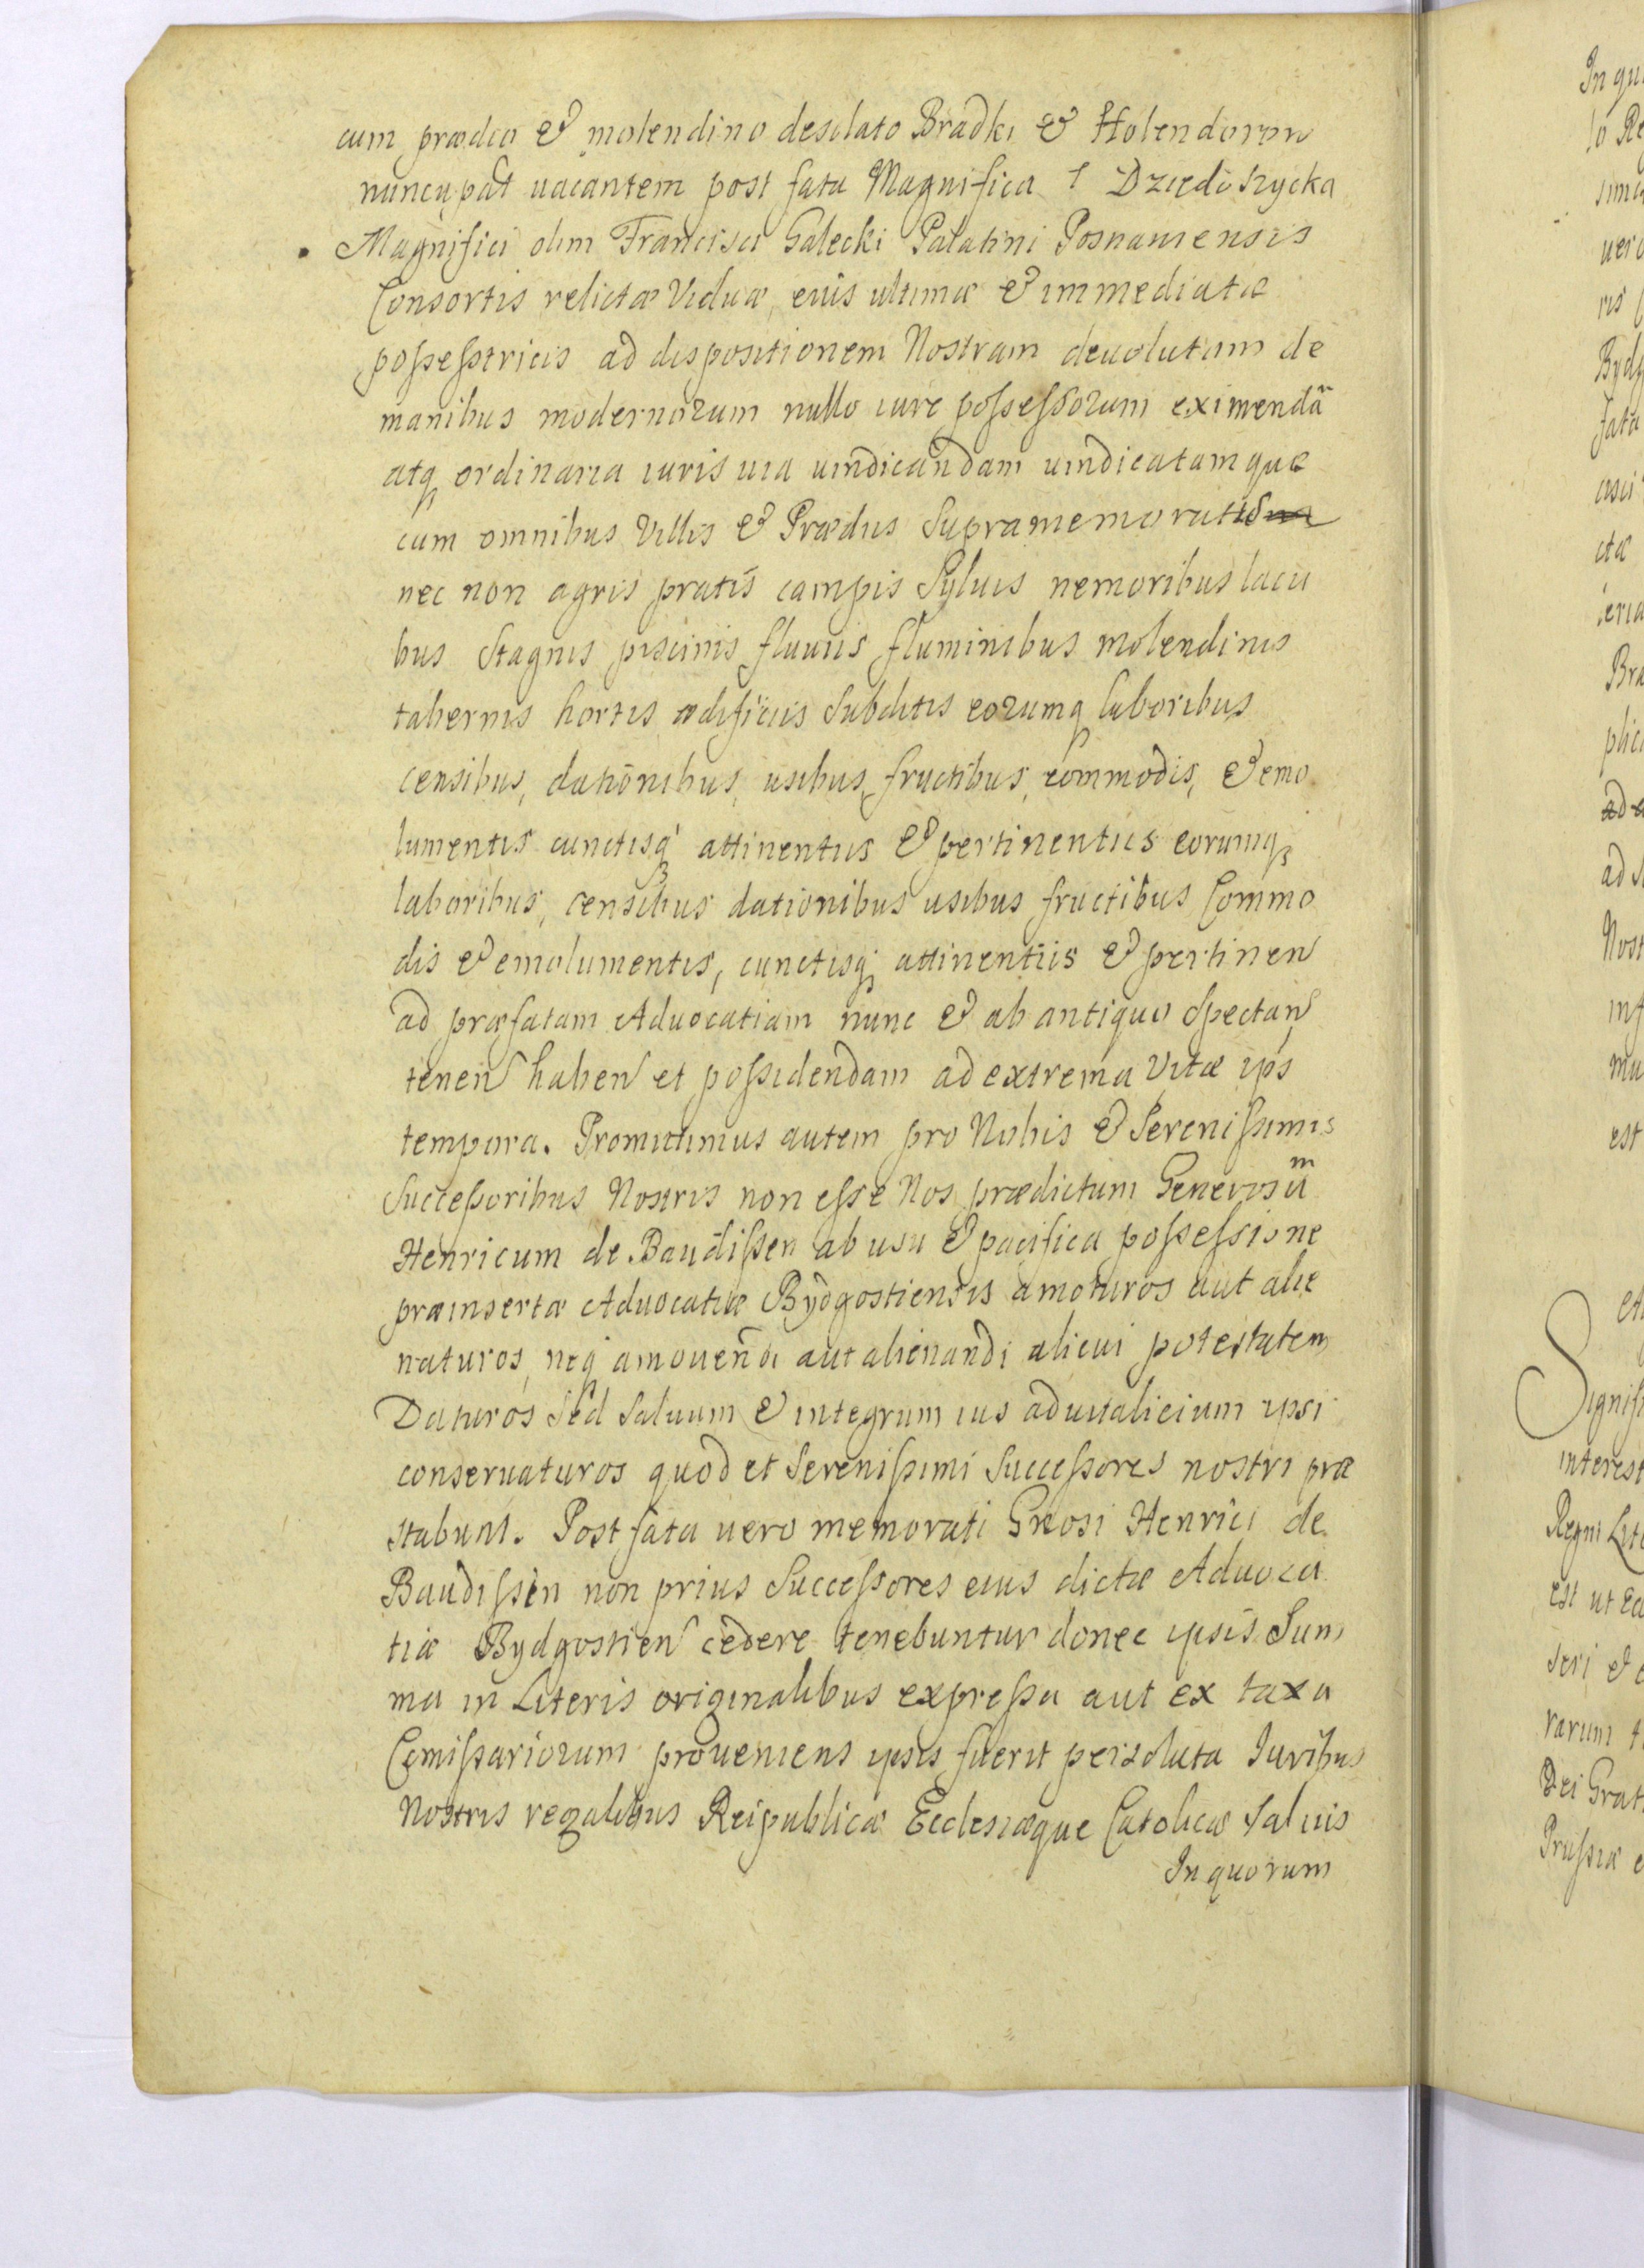 cum prædio & molendino desolato Bradki & Holendorow
nuncupat uacantem post fata Magnifica Dziedoszycka
Magnifici olim Francisci Galecki Palatini Posnaniensis
Consortis relictæ Viduæ, eius ultimæ & immediatæ
possesstricis ad dispositionem Nostram deuolutam de
manibus modernorum nullo iure possessorum eximendã
atq ordinaria iuris uia uindicandam uindicatamque
cum omnibus Villis & Prædiis Supramemoratis
nec non agris pratis campis Syluis nemoribus lacu
bus Stagnis piscinis fluuiis fluminibus molendinis
tabernis hortis ædificiis Subditis eorumq laboribus
censibus, dationibus, usibus, fructibus, commodis, & emo
lumentis cunctisq attinentiis & pertinentiis eorumq
laboribus, censibus dationibus usibus fructibus Commo
dis & emolumentis, cunctisq attinentiis & pertinen
ad præfatam Aduocatiam nunc & ab antiquo Spectan
tenen haben et possidendam ad extrema Vitæ ips
tempora. Promittimus autem pro Nobis & Serenissimis
Successoribus Nostris non esse Nos prædictum Generosũm
Henricum de Baudissen ab usu & pacifica possessione
præinsertæ Aduocatiæ Bydgostiensis amoturos aut alie
naturos, neq amouendi aut alienandi alicui potestatem
Daturos Sed Saluum & integrum ius aduitalicium ipsi
conseruaturos quod et Serenissimi Successores nostri præ
stabunt. Post fata uero memorati Gnosi Henrici de
Baudissen non prius Successores eius dictæ Aduoca
tiæ Bydgostien cedere tenebuntur donec ipsis Sum
ma in Literis originalibus expressa aut ex taxa
Comissariorum proueniens ipsis fuerit persoluta Iuribus
Nostris regalibus Reipublicæ Ecclesiæque Catolicæ Saluis
In quorum